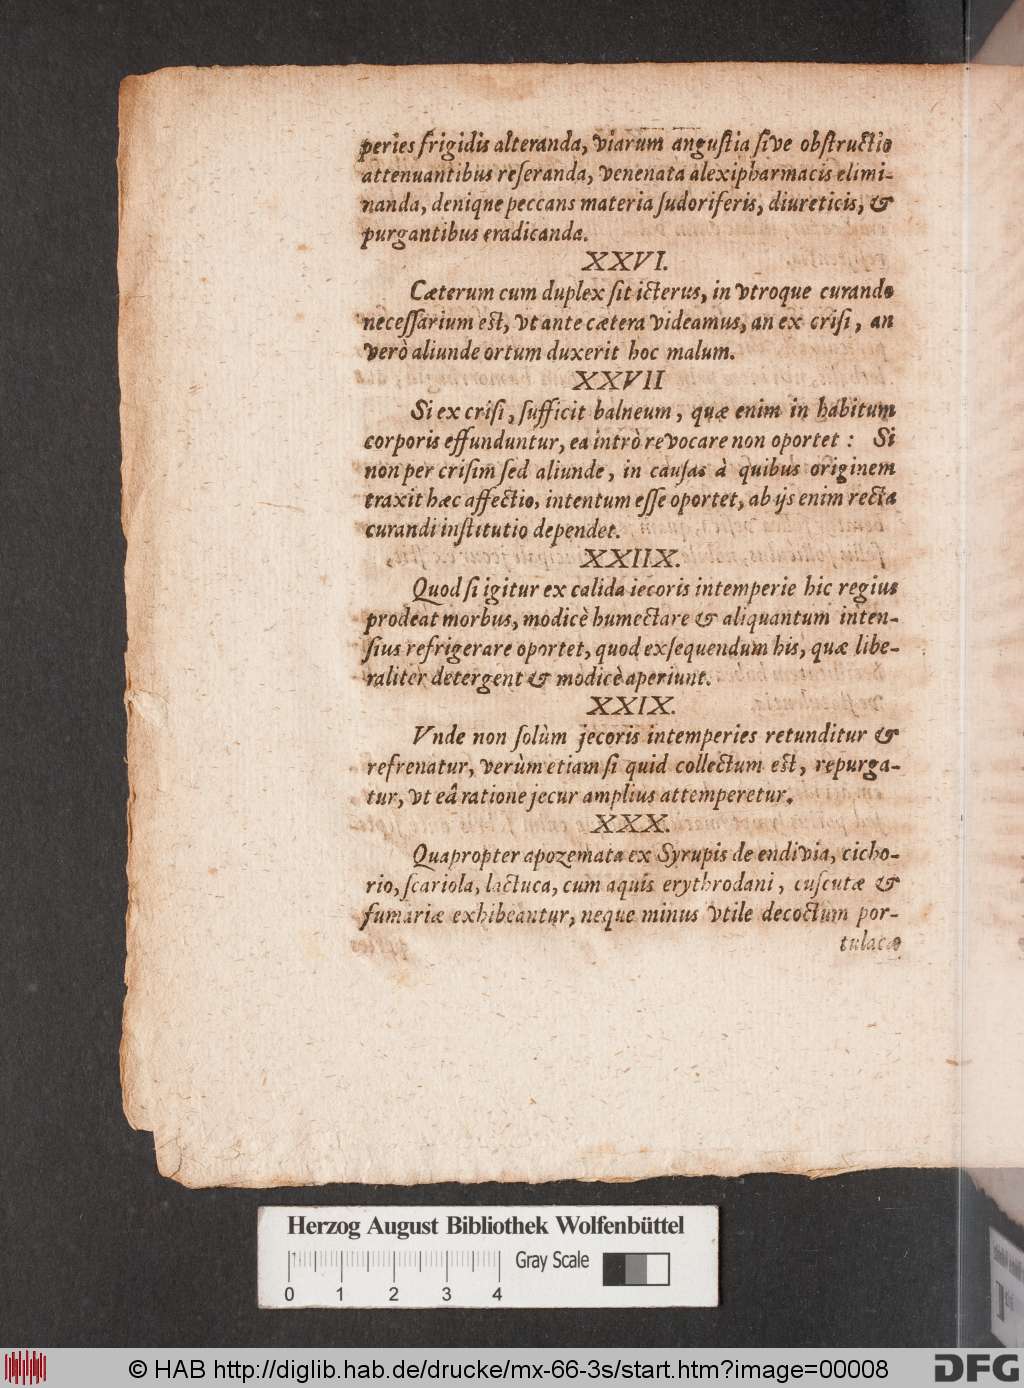 peries frigidis alteranda, viarum angustia sive obstructio
attenuantibus reseranda, venenata alexipharmacis elimi-
nanda, denique peccans materia sudoriferis, diureticis, &
purgantibus eradicanda.
XXVI.
Cæterum cum duplex sit icterus, in vtroque curando
necessarium est, vt ante cætera videamus, an ex crisi, an
verò aliunde ortum duxerit hoc malum.
XXVII
Si ex crisi, sufficit balneum, quæ enim in habitum
corporis effunduntur, ea intrò revocare non oportet: Si
non per crisim sed aliunde, in causas à quibus originem
traxit hæc affectio, intentum esse oportet, ab ijs enim recta
curandi institutio dependet.
XXIIX.
Quod si igitur ex calida iecoris intemperie hic regius
prodeat morbus, modicè humectare & aliquantum inten-
sius refrigerare oportet, quod exsequendum his, quæ libe-
raliter detergent & modicè aperiunt.
XXIX.
Vnde non solùm jecoris intemperies retunditur &
refrenatur, verùm etiam si quid collectum est, repurga-
tur, vt eâ ratione jecur amplius attemperetur.
XXX.
Quapropter apozemata ex Syrupis de endivia, cicho-
rio, scariola, lactuca, cum aquis erythrodani, cuscutæ &
fumariæ exhibeantur, neque minus vtile decoctum por-
tulacæ
Herzog August Bibliothek Wolfenbüttel
Gray Scale
0 1 2 3 4
© HAB http://diglib.hab.de/drucke/mx-66-3s/start.htm?image=00008
DFG